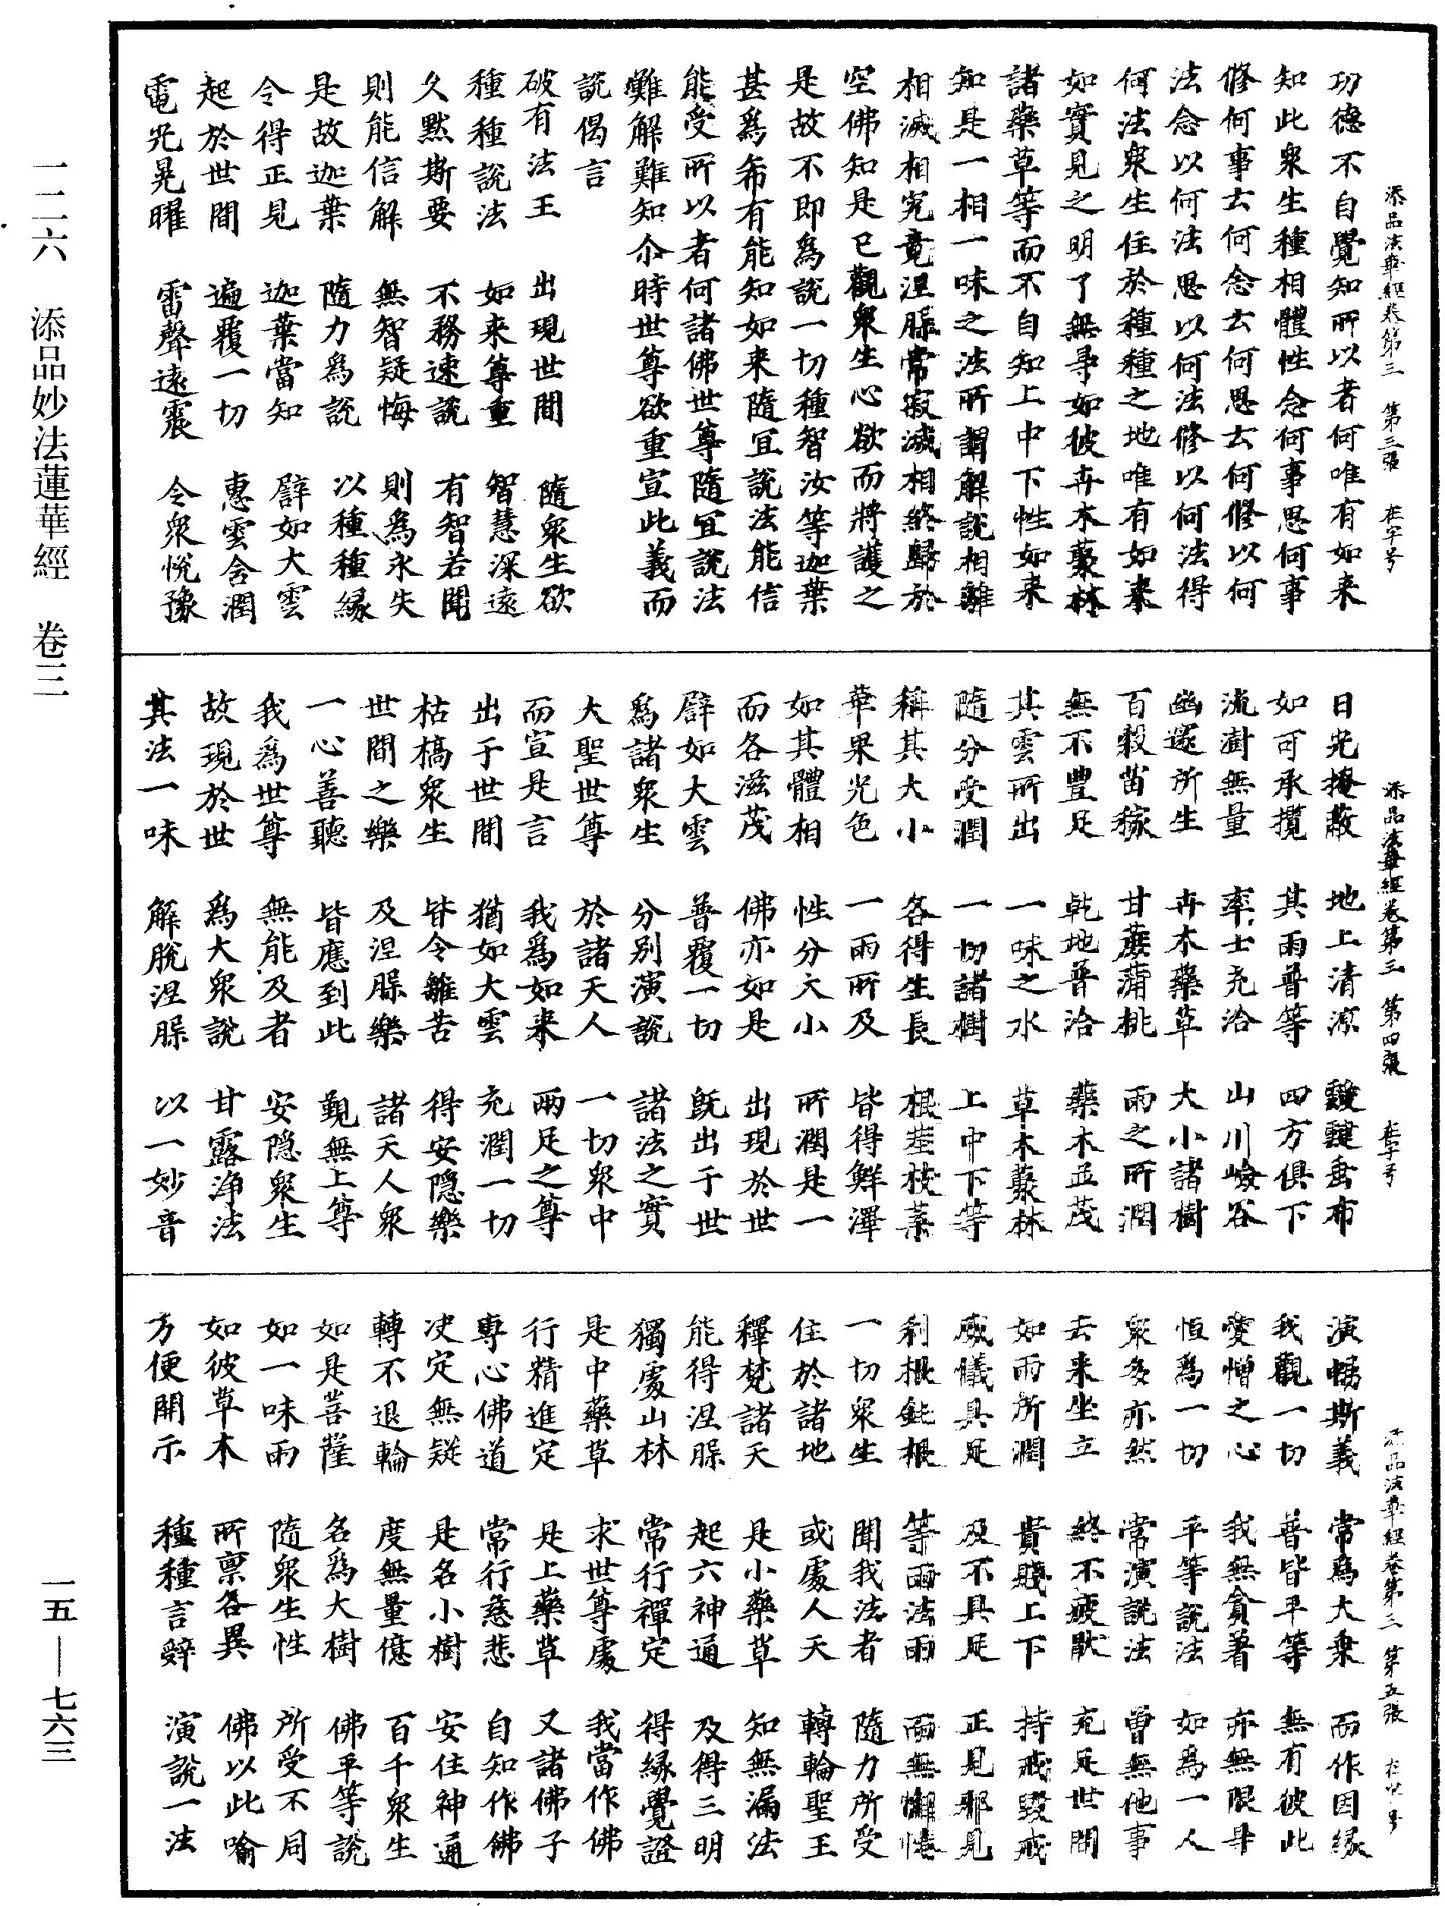 添品法華經卷第三　第三張　在字号
功德不自覺知所以者何唯有如来
知此衆生種相體性念何事思何事
修何事云何念云何思云何修以何
法念以何法思以何法修以何法得
何法衆生住於種種之地唯有如来
如實見之明了無㝵如彼卉木藂林
諸藥草等而不自知上中下性如来
知是一相一味之法所謂解脫相離
相滅相究竟涅槃常寂滅相終歸於
空佛知是已觀衆生心欲而將護之
是故不即爲說一切種智汝等迦葉
甚爲希有能知如来隨宜說法能信
能受所以者何諸佛世尊隨宜說法
難解難知尒時世尊欲重宣此義而
說偈言
破有法王　出現世間　隨衆生欲
種種說法　如来尊重　智慧深遠
久默斯要　不務速說　有智若聞
則能信解　無智疑悔　則爲永失
是故迦葉　隨力爲說　以種種緣
令得正見　迦葉當知　譬如大雲
起於世間　遍覆一切　惠雲含潤
電光晃曜　雷聲遠震　令衆悅豫
添品法華經卷第三　第四張　在字号
日光掩蔽　地上清涼　靉靆垂布
如可承攬　其雨普等　四方俱下
流澍無量　率土充洽　山川嶮谷
幽邃所生　卉木藥草　大小諸樹
百穀苗稼　甘蔗蒲桃　雨之所潤
無不豐足　乾地普洽　藥木並茂
其雲所出　一味之水　草木藂林
隨分受潤　一切諸樹　上中下等
稱其大小　各得生長　根莖枝葉
華果光色　一雨所及　皆得鮮澤
如其體相　性分大小　所潤是一
而各滋茂　佛亦如是　出現於世
譬如大雲　普覆一切　旣出于世
爲諸衆生　分別演說　諸法之實
大聖世尊　於諸天人　一切衆中
而宣是言　我爲如来　兩足之尊
出于世間　猶如大雲　充潤一切
枯槁衆生　皆令離苦　得安隱樂
世間之樂　及涅槃樂　諸天人衆
一心善聽　皆應到此　覲無上尊
我爲世尊　無能及者　安隱衆生
故現於世　爲大衆說　甘露淨法
其法一味　解脫涅槃　以一妙音
添品法華經卷第三　第五張　在字号
演暢斯義　常爲大乗　而作因緣
我觀一切　普皆平等　無有彼此
愛憎之心　我無貪著　亦無限㝵
恒爲一切　平等說法　如爲一人
衆多亦然　常演說法　曾無他事
去来坐立　終不疲猒　充足世間
如雨所潤　貴賤上下　持戒毀戒
威儀具足　及不具足　正見邪見
利根鈍根　等雨法雨　而無懈惓
一切衆生　聞我法者　隨力所受
住於諸地　或處人天　轉輪聖王
釋梵諸天　是小藥草　知無漏法
能得涅槃　起六神通　及得三明
獨處山林　常行禪定　得緣覺證
是中藥草　求世尊處　我當作佛
行精進定　是上藥草　又諸佛子
專心佛道　常行慈悲　自知作佛
决定無疑　是名小樹　安住神通
轉不退輪　度無量億　百千衆生
如是菩薩　名爲大樹　佛平等說
如一味雨　隨衆生性　所受不同
如彼草木　所禀各異　佛以此喻
方便開示　種種言辭　演說一法
一二六　添品妙法蓮華經　卷三
一五—七六三